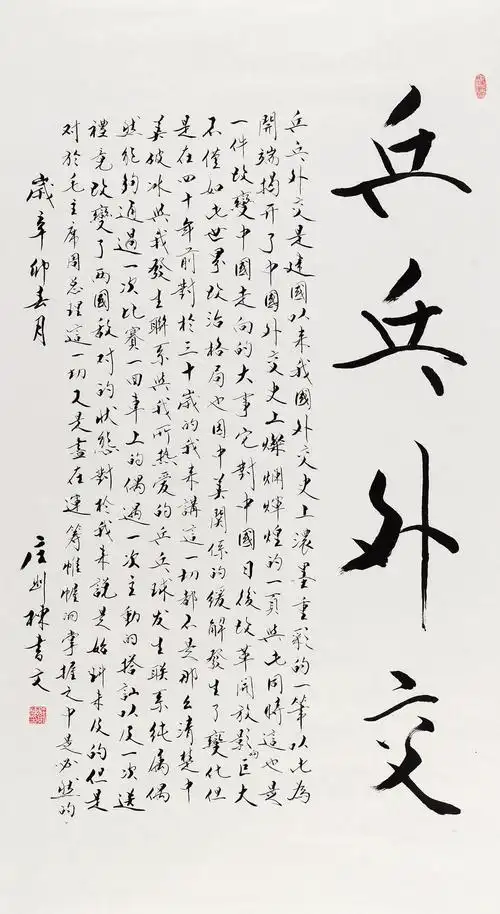 乒乓外交
乒乓外交是建國以来我國外交史上濃墨重彩的一筆以此為
開端揭開了中國外交史上燦爛輝煌的一頁與此同時這也是
一件改變中國走向的大事它對中國日後改革開放影响巨大
不僅如此世界政治格局也因中美關係的緩解發生了變化但
是在四十年前對於三十歲的我来講這一切都不是那么清楚中
美破冰與我發生聯系與我所熱愛的乒乓球发生联系纯属偶
然能夠通過一次比賽一回車上的偶遇一次主動的搭訕以及一次送
禮竟改變了兩國敵對的狀態對於我来說是始料未及的但是
对於毛主席周总理這一切又是盡在運籌帷幄的掌握之中是必然的
歲辛卯春月
庄則棟書文